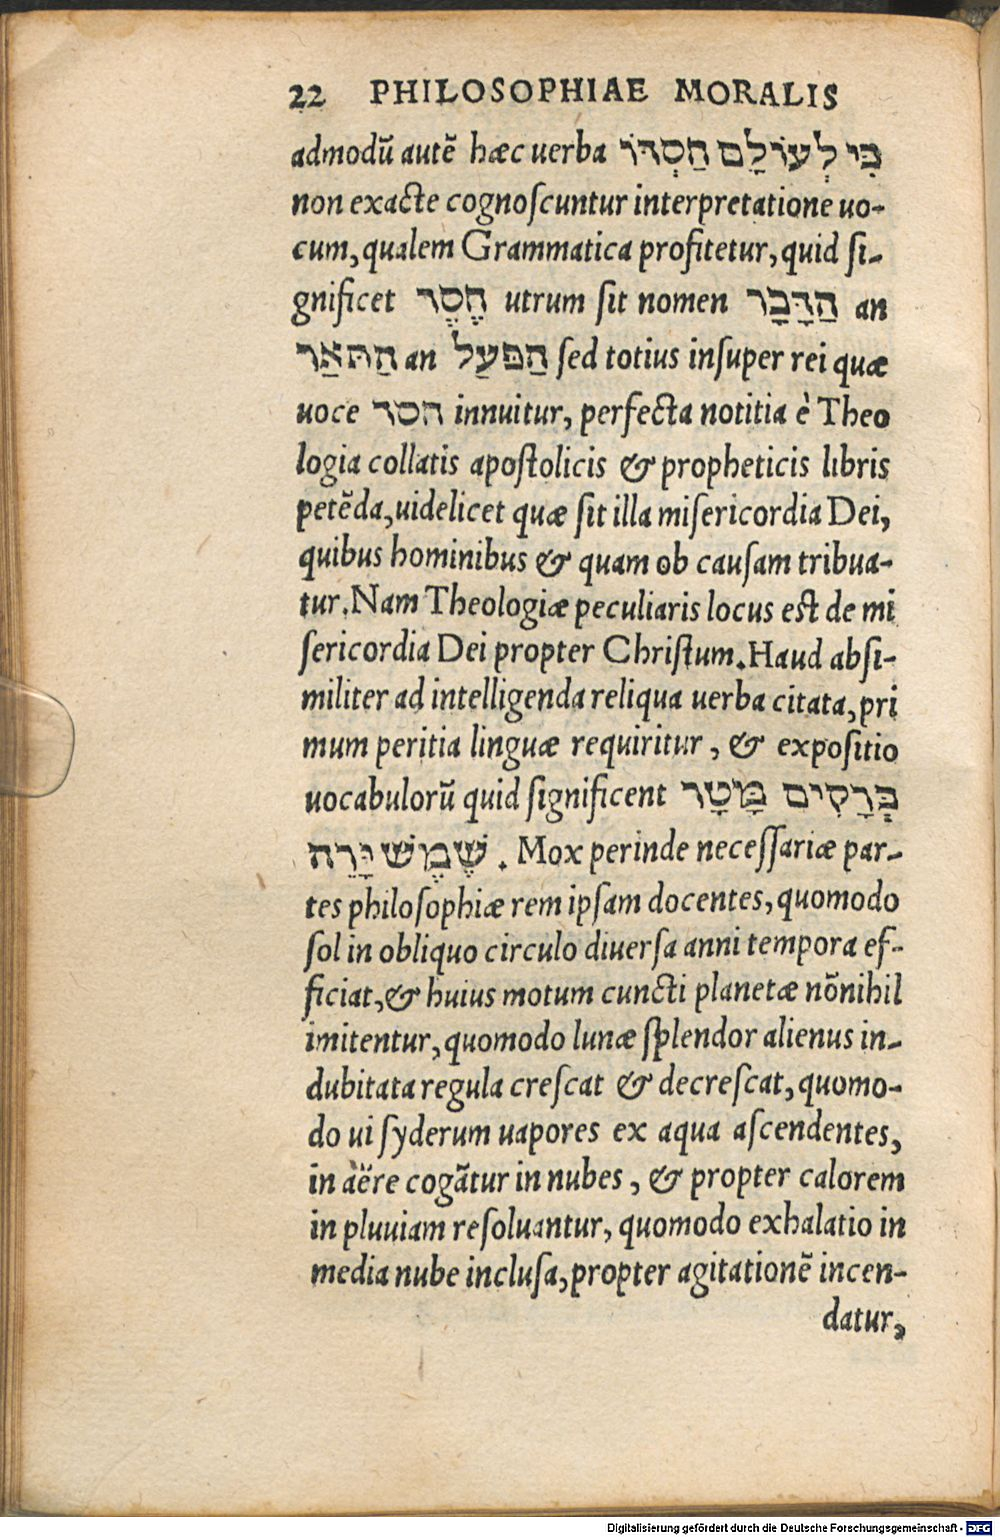 22 PHILOSOPHIAE MORALIS
admodū autē hæc uerba כִּי לְעוֹלָם חַסְדּוֹ
non exacte cognoſcuntur interpretatione uo-
cum, qualem Grammatica profitetur, quid ſi-
gnificet חֶסֶר utrum ſit nomen הַדָּבָר an
הַתּאַר an הַפּעַל ſed totius inſuper rei quæ
uoce חסר innuitur, perfecta notitia è Theo
logia collatis apoſtolicis & propheticis libris
petēda, uidelicet quæ ſit illa miſericordia Dei,
quibus hominibus & quam ob cauſam tribua-
tur. Nam Theologiæ peculiaris locus eſt de mi
ſericordia Dei propter Chriſtum. Haud abſi-
militer ad intelligenda reliqua uerba citata, pri
mum peritia linguæ requiritur, & expoſitio
uocabulorū quid ſignificent בְּרָקִים מָטָר
שֶׁמֶשׁ יָרֵה . Mox perinde neceſſariæ par-
tes philoſophiæ rem ipſam docentes, quomodo
ſol in obliquo circulo diuerſa anni tempora ef-
ficiat, & huius motum cuncti planetæ nōnihil
imitentur, quomodo lunæ ſplendor alienus in-
dubitata regula creſcat & decreſcat, quomo-
do ui ſyderum uapores ex aqua aſcendentes,
in aëre cogātur in nubes, & propter calorem
in pluuiam reſoluantur, quomodo exhalatio in
media nube incluſa, propter agitationē incen-
datur,
Digitalisierung gefördert durch die Deutsche Forschungsgemeinschaft - DFG